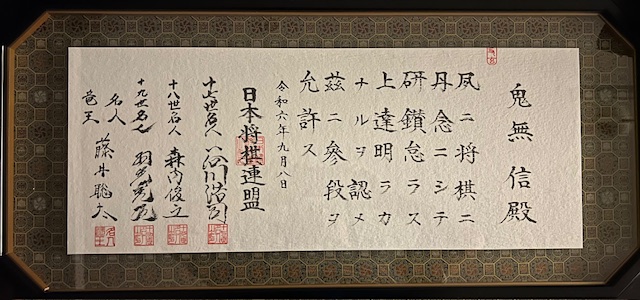 鬼無信殿
夙ニ将棋ニ
丹念ニシテ
研鑽怠ラス
上達明ラカ
ナルヲ認メ
茲ニ參段ヲ
允許ス
令和六年九月八日
日本将棋連盟
十七世名人 谷川浩司
十八世名人 森内俊之
十九世名人 羽生善治
名人
竜王 藤井聡太